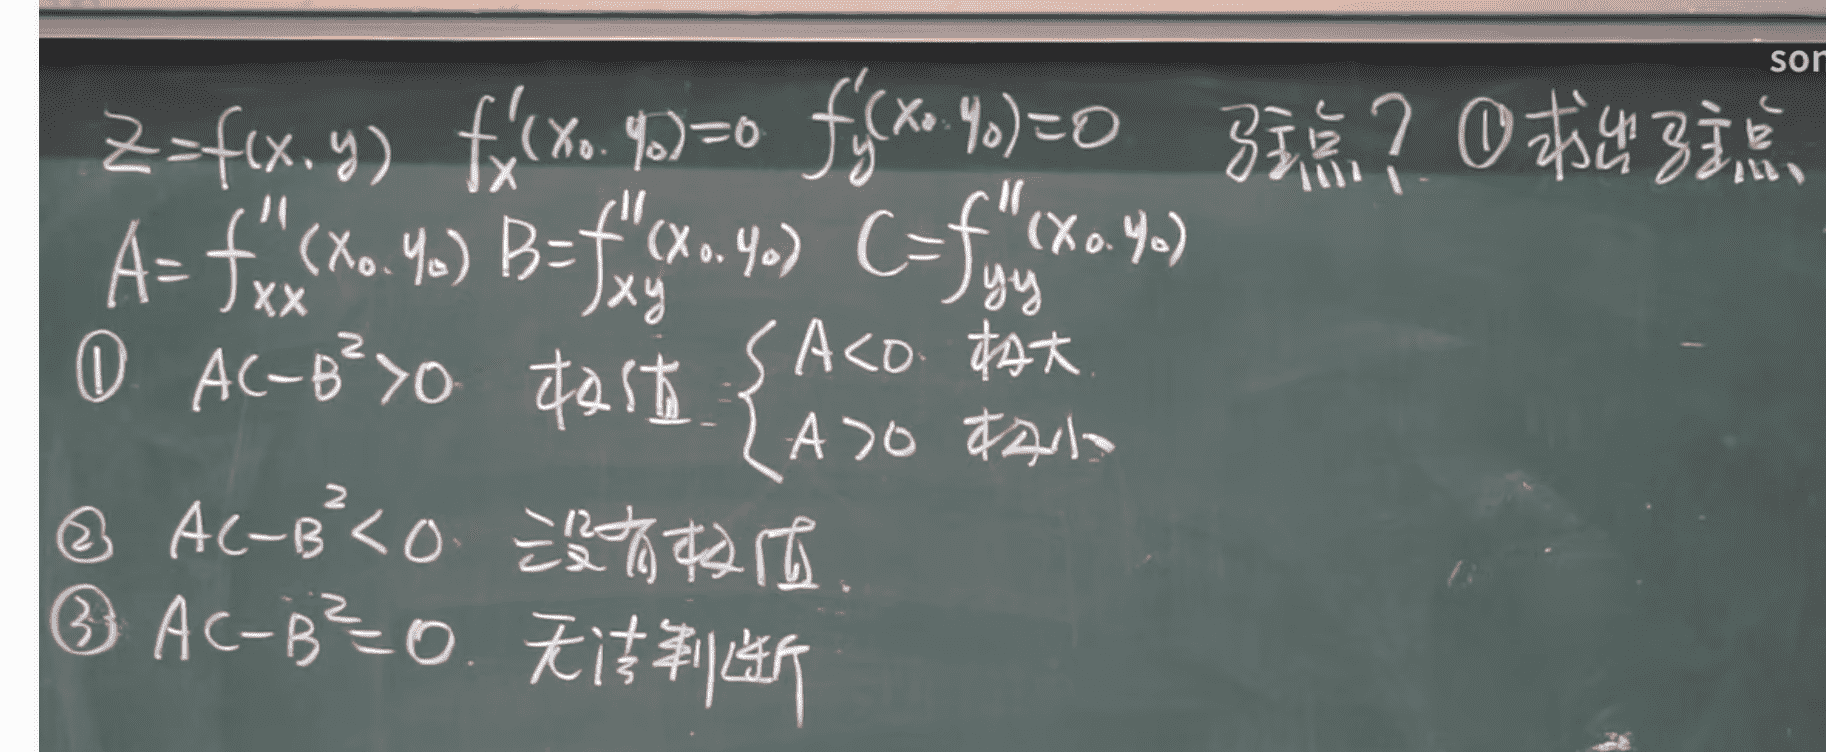 son
Z=f(x.y) f'x(x0.y0)=0 f'y(x0.y0)=0 驻点? ①求出驻点
A=f''xx(x0.y0) B=f''xy(x0.y0) C=f''yy(x0.y0)
① AC-B²>0 极值 { A<0 极大
A>0 极小
② AC-B²<0 没有极值
③ AC-B²=0. 无法判断